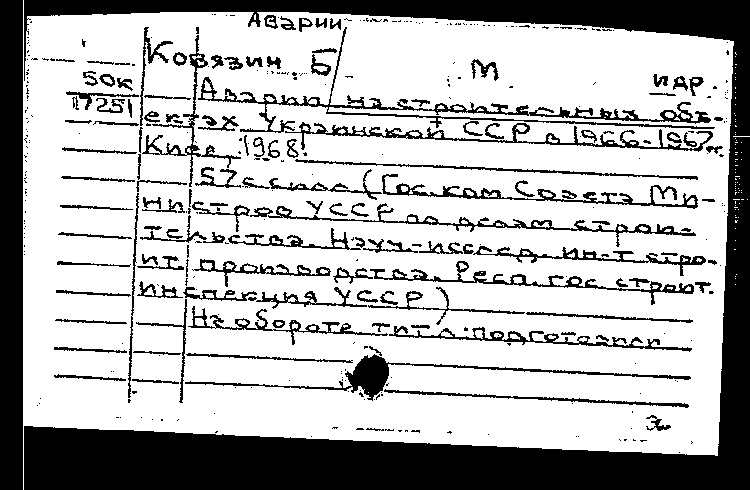 Аварии
Ковязин. Б М идр.
50к
17251
Аварии на строительных объ-
ектах Украинской ССР в 1966-1967 гг.
Киев, 1968.
57с силл (Гос. ком Совета Ми-
нистров УССР по делам строи-
тельства. Науч.-исслед. ин-т стро-
ит. производства. Респ. гос строит.
инспекция УССР)
На обороте тит. л: подготовили